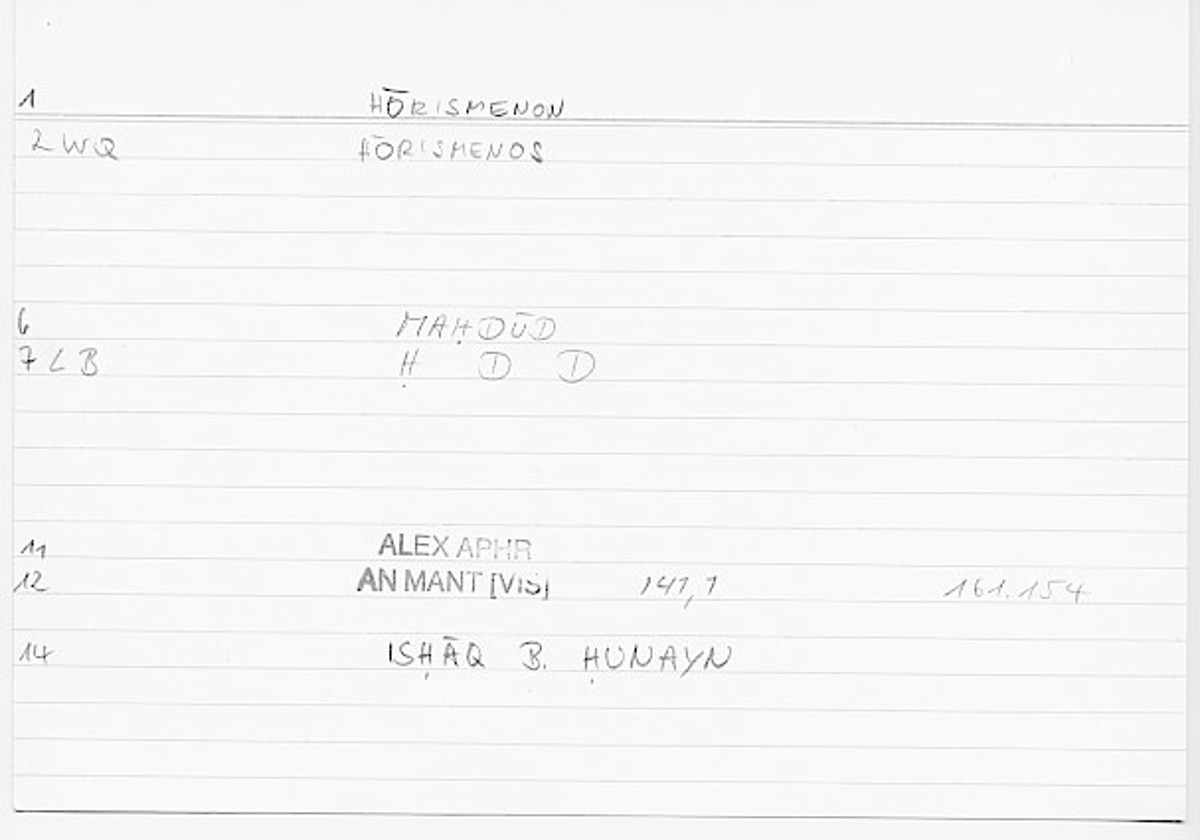 1 HŌRISMENON
2 WQ HŌRISMENOS
6 MAḤDŪD
7 LB Ḥ D D
11 ALEX APHR
12 AN MANT [VIS] 141,1 161.154
14 ISḤĀQ B. ḤUNAYN